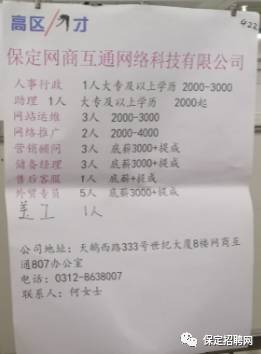 高区人才
422
保定网商互通网络科技有限公司
人事行政 1人大专及以上学历 2000-3000
助理 1人 大专及以上学历 2000起
网站运维 3人 2000-3000
网络推广 2人 2000-4000
营销顾问 3人 底薪3000+提成
储备经理 3人 底薪3000+提成
售后客服 1人 底薪+提成
外贸专员 5人 底薪3000+提成
美工 1人
公司地址：天鹅西路333号世纪大厦8楼网商互
通807办公室
电话：0312-8638007
联系人：何女士
保定招聘网